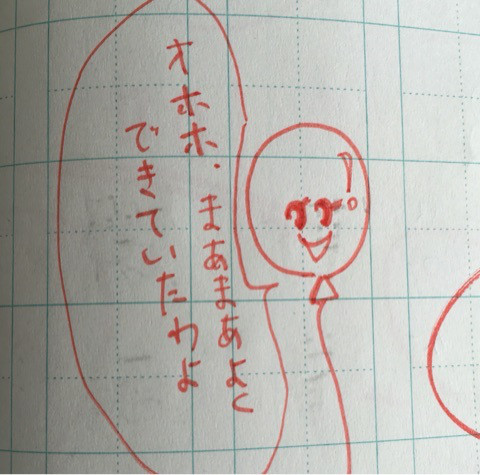 オホホ、まあまあよく
できていたわよ